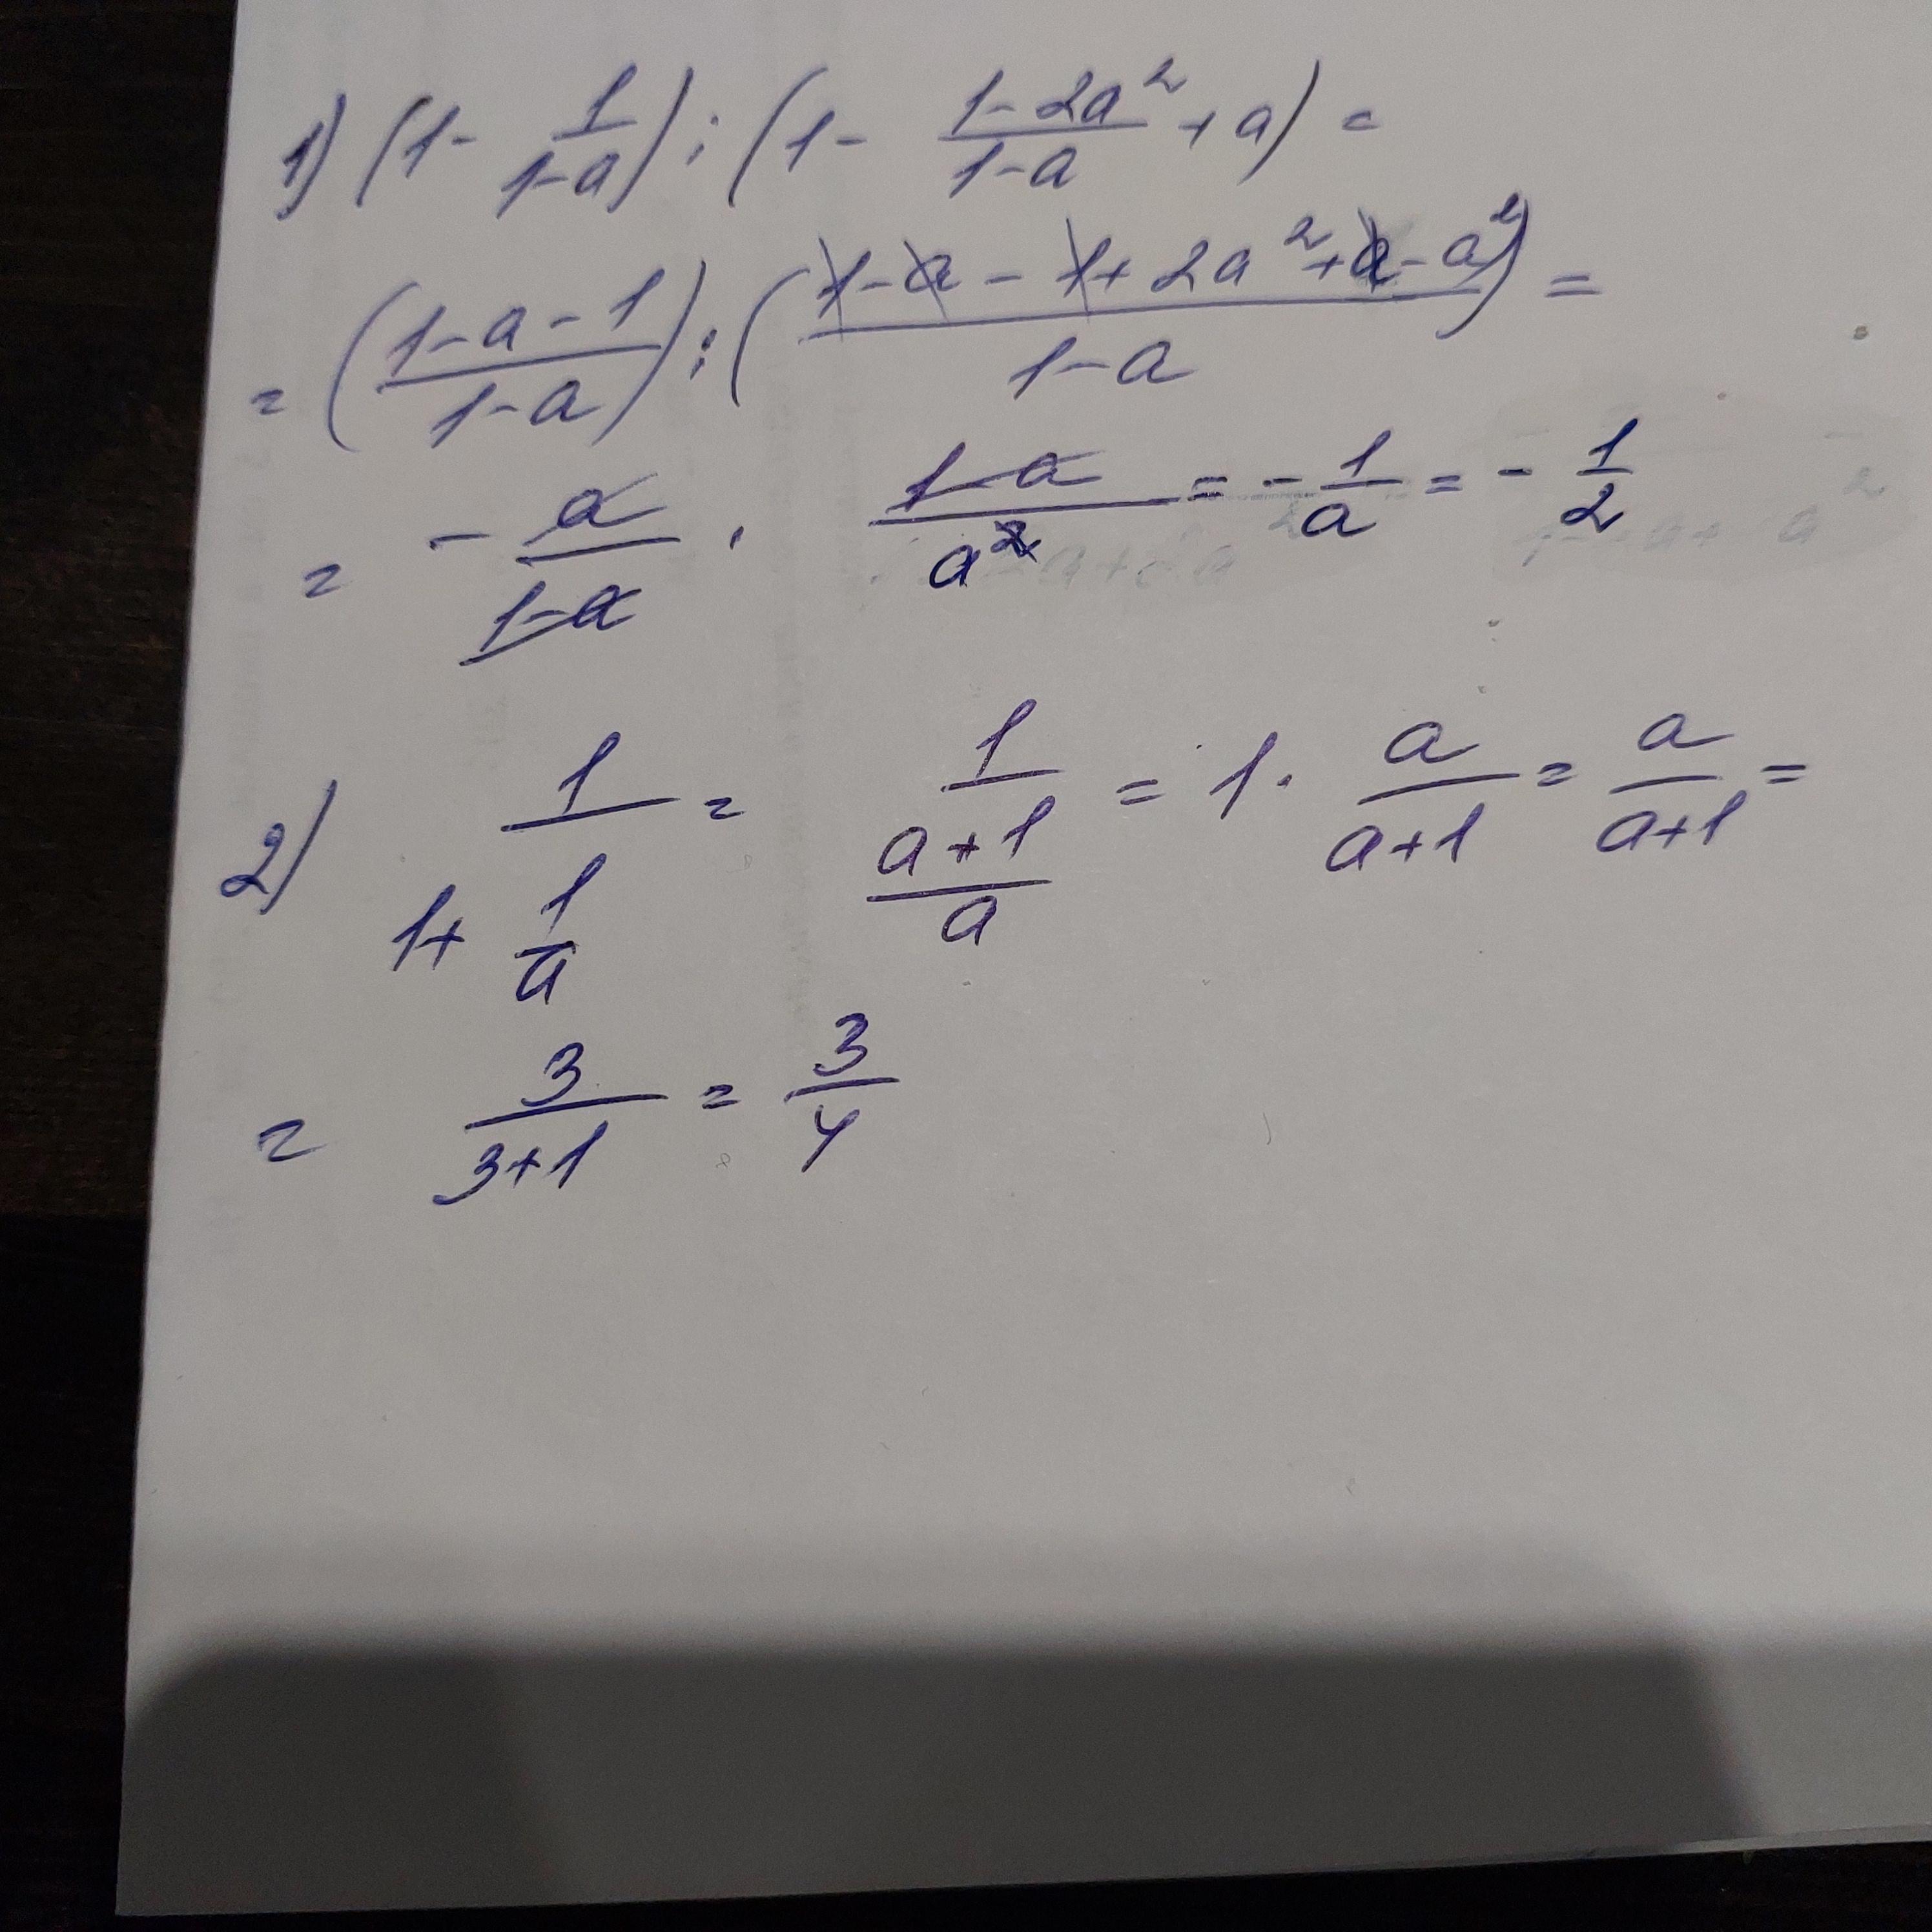 1) (1 - 1/(1-a)) : (1 - (1-2a²)/(1-a) + a) =
= ((1-a-1)/(1-a)) : ((1-a-1+2a²+a-a²)/(1-a)) =
= - a/(1-a) · (1-a)/a² = - 1/a = - 1/2
2) 1/(1+1/a) = 1/((a+1)/a) = 1 · a/(a+1) = a/(a+1) =
= 3/(3+1) = 3/4